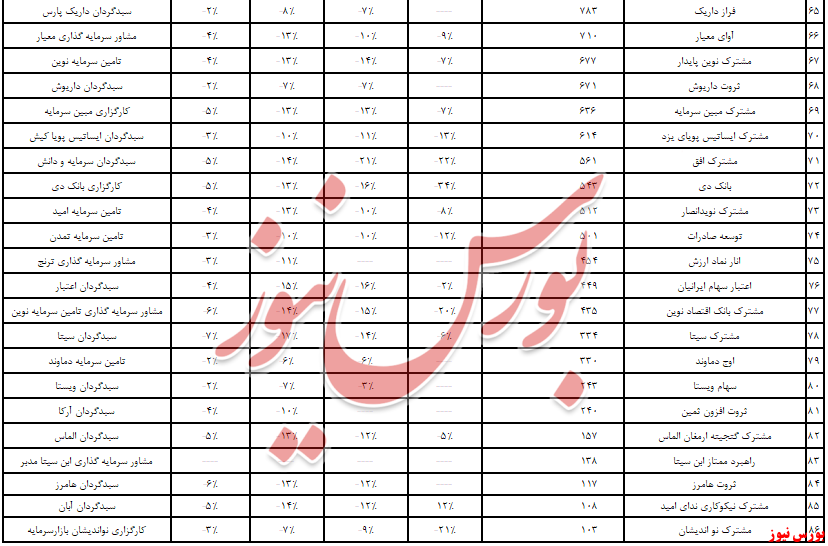 ۶۵ فراز داریک ۷۸۳ —— -۷٪ -۸٪ -۲٪ سبدگردان داریک پارس
۶۶ آوای معیار ۷۱۰ -۹٪ -۱۰٪ -۱۳٪ -۴٪ مشاور سرمایه گذاری معیار
۶۷ مشترک نوین پایدار ۶۷۷ -۷٪ -۱۴٪ -۱۳٪ -۴٪ تامین سرمایه نوین
۶۸ ثروت داریوش ۶۷۱ —— -۷٪ -۷٪ -۲٪ سبدگردان داریوش
۶۹ مشترک مبین سرمایه ۶۳۶ -۷٪ -۱۳٪ -۱۳٪ -۵٪ کارگزاری مبین سرمایه
۷۰ مشترک ایساتیس پویای یزد ۶۱۴ -۱۳٪ -۱۱٪ -۱۰٪ -۳٪ سبدگردان ایساتیس پویا کیش
۷۱ مشترک افق ۵۶۱ -۲۲٪ -۲۱٪ -۱۴٪ -۵٪ سبدگردان سرمایه و دانش
۷۲ بانک دی ۵۴۳ -۳۴٪ -۱۶٪ -۱۳٪ -۵٪ کارگزاری بانک دی
۷۳ مشترک نویدانصار ۵۱۲ -۸٪ -۱۰٪ -۱۳٪ -۴٪ تامین سرمایه امید
۷۴ توسعه صادرات ۵۰۱ -۱۲٪ -۱۰٪ -۱۰٪ -۳٪ تامین سرمایه تمدن
۷۵ انار نماد ارزش ۴۵۴ —— —— -۱۱٪ -۳٪ مشاور سرمایه گذاری ترنج
۷۶ اعتبار سهام ایرانیان ۴۴۹ -۲٪ -۱۶٪ -۱۵٪ -۴٪ سبدگردان اعتبار
۷۷ مشترک بانک اقتصاد نوین ۴۳۵ -۲۰٪ -۱۵٪ -۱۴٪ -۶٪ مشاور سرمایه گذاری تامین سرمایه نوین
۷۸ مشترک سیتا ۳۳۴ ۶٪ -۱۴٪ -۱۷٪ -۷٪ سبدگردان سیتا
۷۹ اوج دماوند ۳۳۰ —— ۶٪ ۶٪ -۲٪ تامین سرمایه دماوند
۸۰ سهام ویستا ۲۴۳ —— -۳٪ -۷٪ -۲٪ سبدگردان ویستا
۸۱ ثروت افزون ثمین ۲۴۰ —— —— -۱۰٪ -۴٪ سبدگردان آرکا
۸۲ مشترک گنجینه ارمغان الماس ۱۵۷ -۵٪ -۱۲٪ -۱۳٪ -۵٪ سبدگردان الماس
۸۳ راهبرد ممتاز ابن سیتا ۱۳۸ —— —— —— —— مشاور سرمایه گذاری ابن سیتا مدبر
۸۴ ثروت هامرز ۱۱۷ —— -۱۲٪ -۱۳٪ -۶٪ سبدگردان هامرز
۸۵ مشترک نیکوکاری ندای امید ۱۰۸ ۱۲٪ -۱۲٪ -۱۴٪ -۵٪ سبدگردان آبان
۸۶ مشترک نو اندیشان ۱۰۳ -۲۱٪ -۹٪ -۷٪ -۳٪ کارگزاری نواندیشان بازارسرمایه
بورس نیوز
بورس نیوز